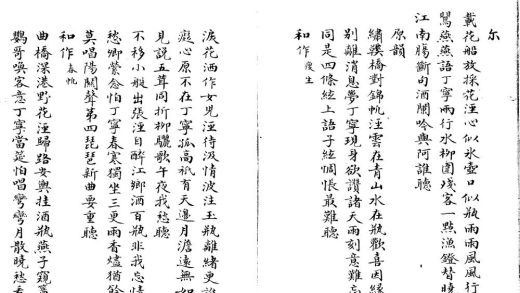 尔
載花船放採花涇心似氷壷口似瓶雨雨風風行
鶯燕燕語丁寧雨行水柳圍殘客一點漁鐙替曉
江南腸斷句酒闌吟與阿誰聽
原韻
繡鞵橋對錦帆涇雲在青山水在瓶歡喜因緣
别離消息夢丁寧現身欲讚諸天雨刻意難忘
同是四條絃上語子絃惆悵最難聽
和作 復生
淚花洒作女兒涇待汲情波注玉瓶離緒更
癡心原不在丁寧孤高祇有天邊月澹遠無如
見説五茸同折柳驪歌午夜我愁聽
不移小艇出張涇自醉江鄉酒百瓶非我忘情
愁卿縈念怕丁寧春寒獨坐三更雨香燼猶餘
莫唱陽關聲第四琵琶新曲要重聽
和作 春帆
曲橋深港野花涇歸路安輿挂酒瓶燕子窺
鸚哥喚客意丁寧當筵怕唱彎彎月散曉愁看